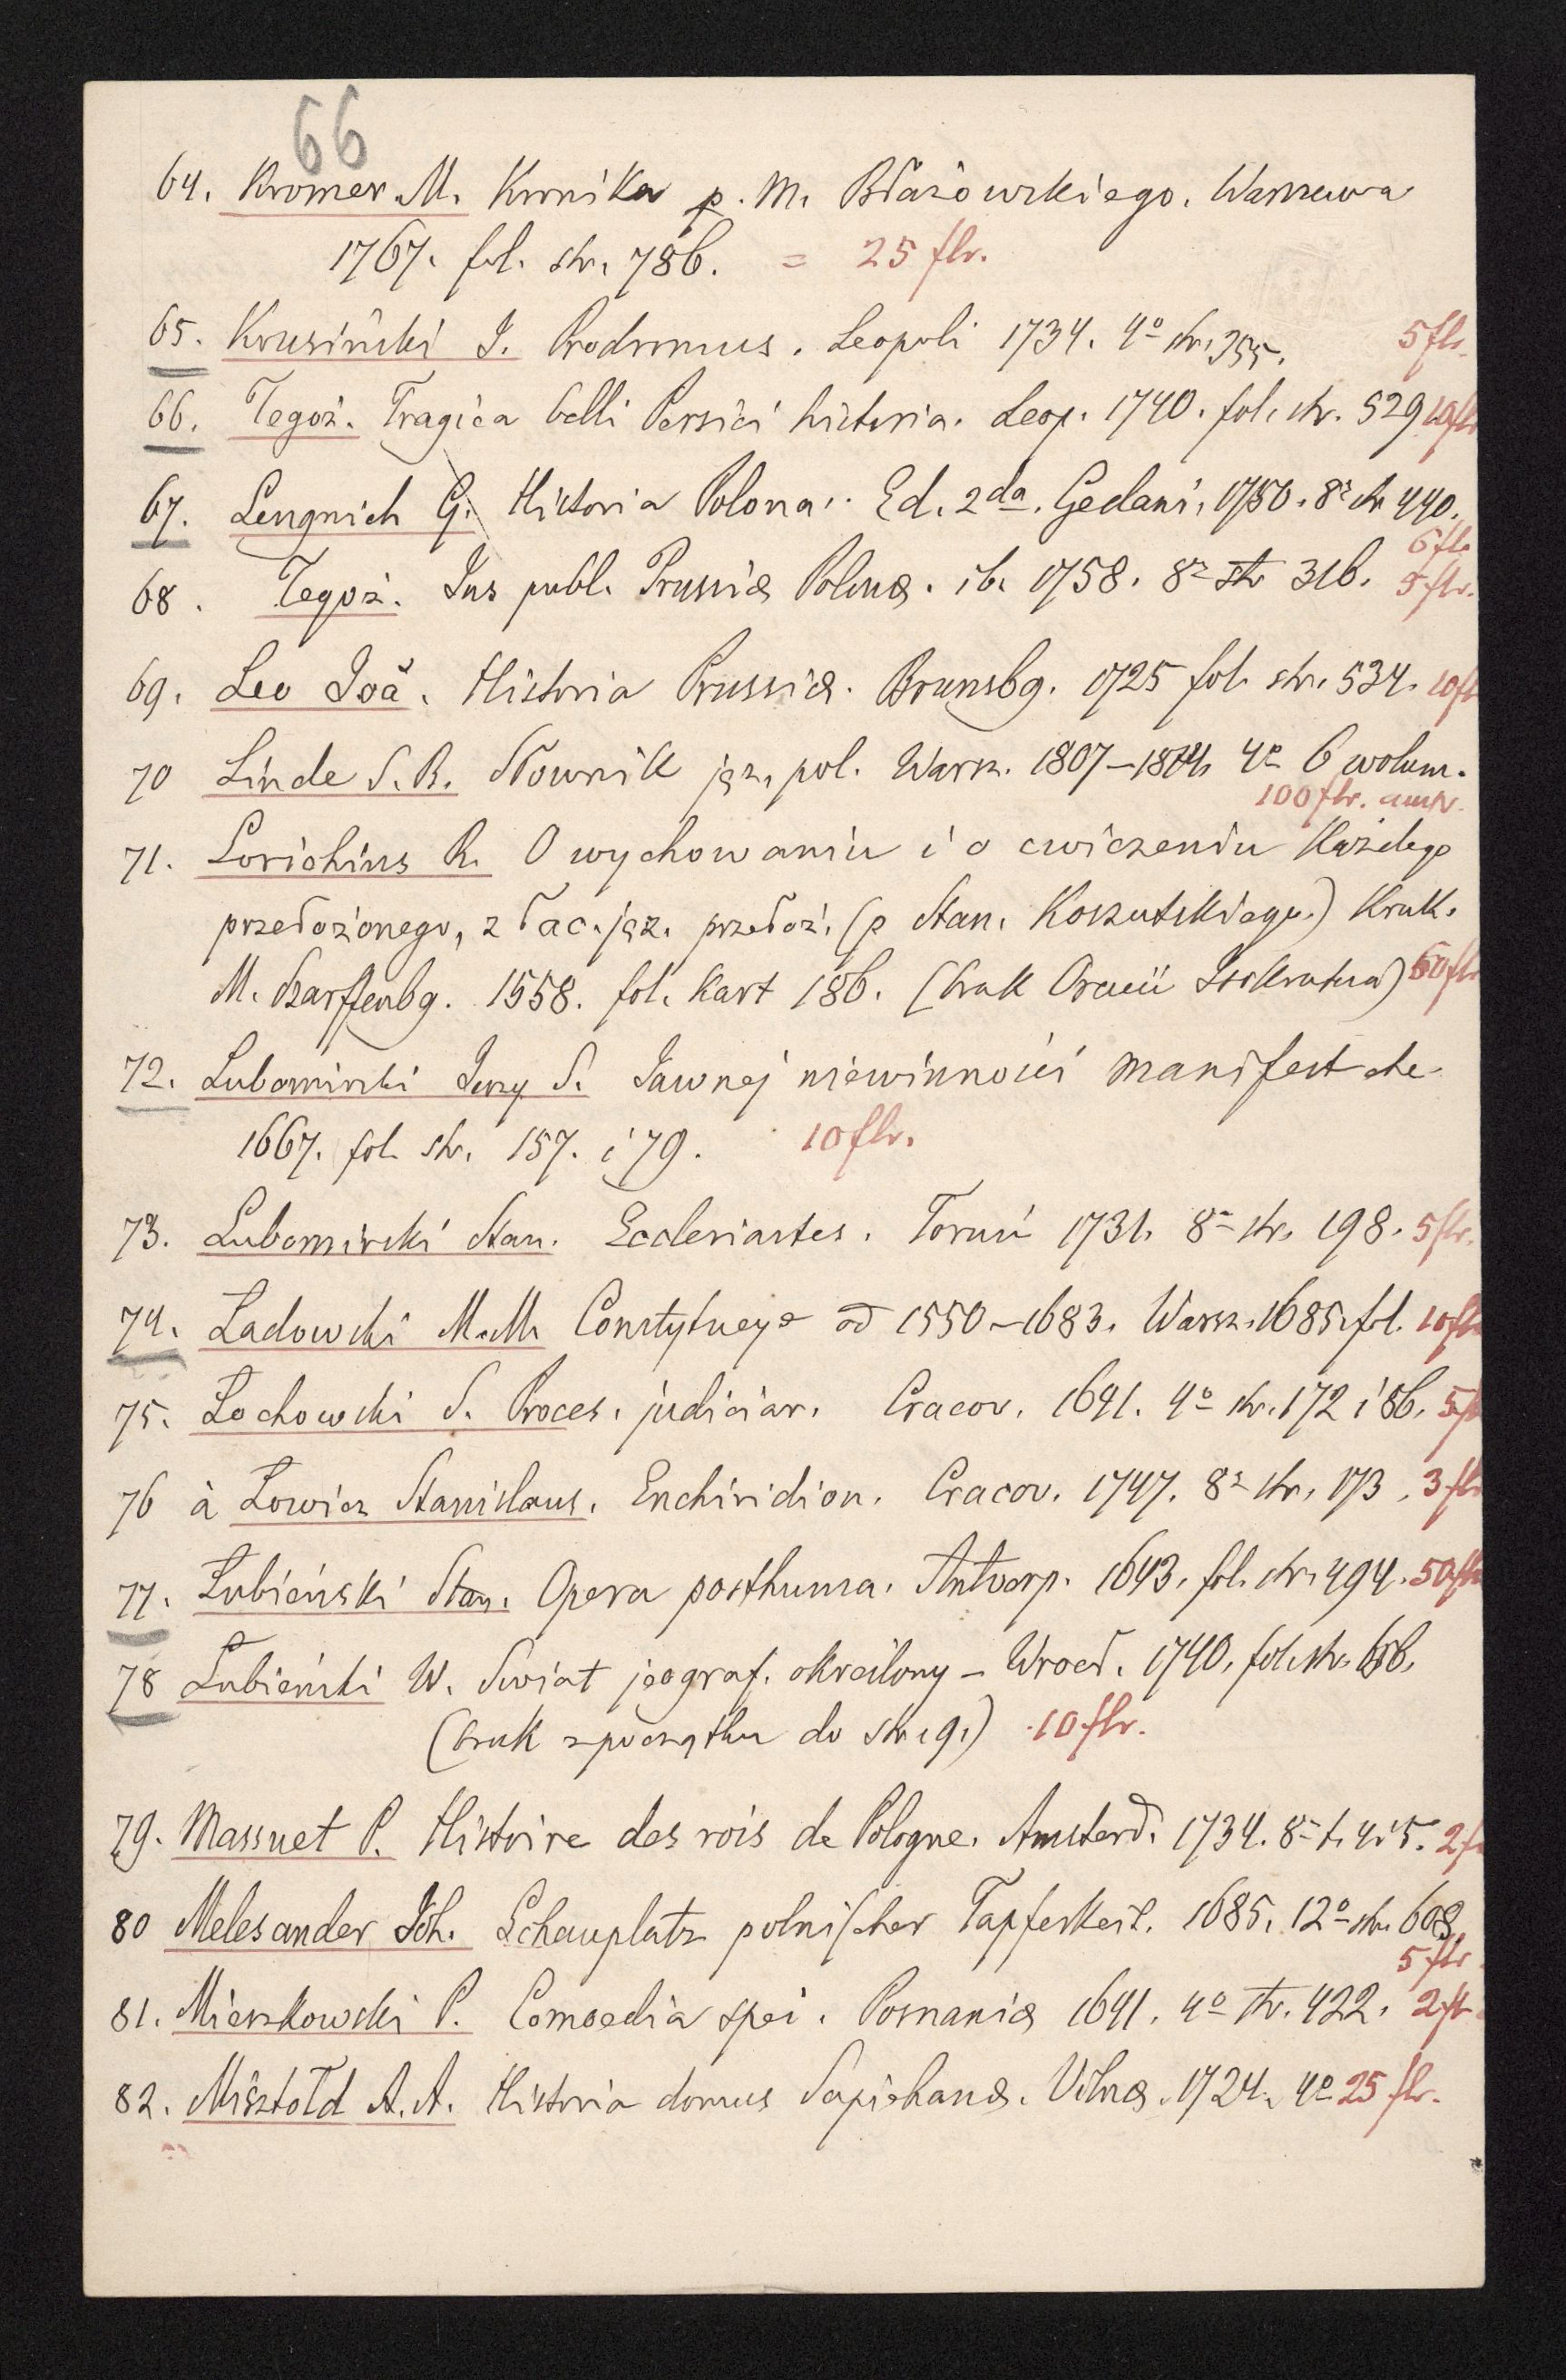 66
64. Kromer M. Kronika p. M. Błażowskiego. Warszawa
1767. fol. str. 786. = 25 flr.
65. Krusiński J. Prodromus. Leopoli 1734. 4º str. 355. 5 flr.
66. Tegoż. Tragica belli Persici historia. Leop. 1740. fol. str. 529 10 flr
67. Lengnich G. Historia Polona. Ed. 2da. Gedani, 1750. 8º str 440.
6 flr
68. Tegoż. Jus publ. Prussiæ Polonæ. ib. 1758. 8º str 316. 5 flr.
69. Leo Joã. Historia Prussiæ. Brunsbg. 1725 fol. str. 534. 10 fl
70 Linde S. B. Słownik jęz. pol. Warsz. 1807–1814 4º 6 wolum.
100 flr.
71. Lorichius R. O wychowaniu i o cwiczeniu Każdego
przełożonego, z łac. jęz. przełoż. (p Stan. Koszutskiego.) Krak.
M. Szarffenbg. 1558. fol. Kart 186. (brak Oracii Isokratesa) 60 flr
72. Lubomirski Jerzy S. Jawnej niewinności manifest etc
1667. fol. str. 157. i 79. 10 flr.
73. Lubomirski Stan. Ecclesiastes. Toruń 1731. 8º str. 198. 5 flr.
74. Ładowski M. M. Constytucye od 1550–1683. Warsz. 1685. fol. 10 flr
75. Łochowski S. Proces. judiciar. Cracov. 1641. 4º str. 172 i 86. 5 fl
76 à Łowicz Stanislaus. Enchiridion. Cracov. 1747. 8º str. 173. 3 flr
77. Łubieński Stan. Opera posthuma. Antverp. 1643. fol. str. 494. 50 flr
78 Łubieński W. Swiat jeograf. okreslony – Wrocł. 1740. fol. str.
(brak z początku do str. 9.) 10 flr.
79. Massuet P. Histoire des rois de Pologne. Amsterd. 1734. 8º t. 4 i 5. 2 f
80 Melesander Joh. Schauplatz polnischer Tapferkeit. 1685. 12º str. 608.
5 flr
81. Mieszkowski P. Comoedia spei. Posnaniæ 1641. 4º str. 422. 2 fl
82. Misztołd A. A. Historia domus Sapiehanæ. Vilnæ. 1724. 4º 25 flr.